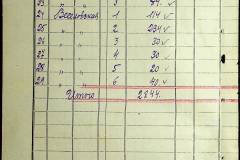 23 " " 3 74. ✓
24 Всесвятская 1 114 ✓
25 " " 2 234 ✓
26 " " 3 30 ✓
27 " " 4 30 ✓
28 " " 5 20 ✓
29 " " 6 40 ✓
Итого 2844.